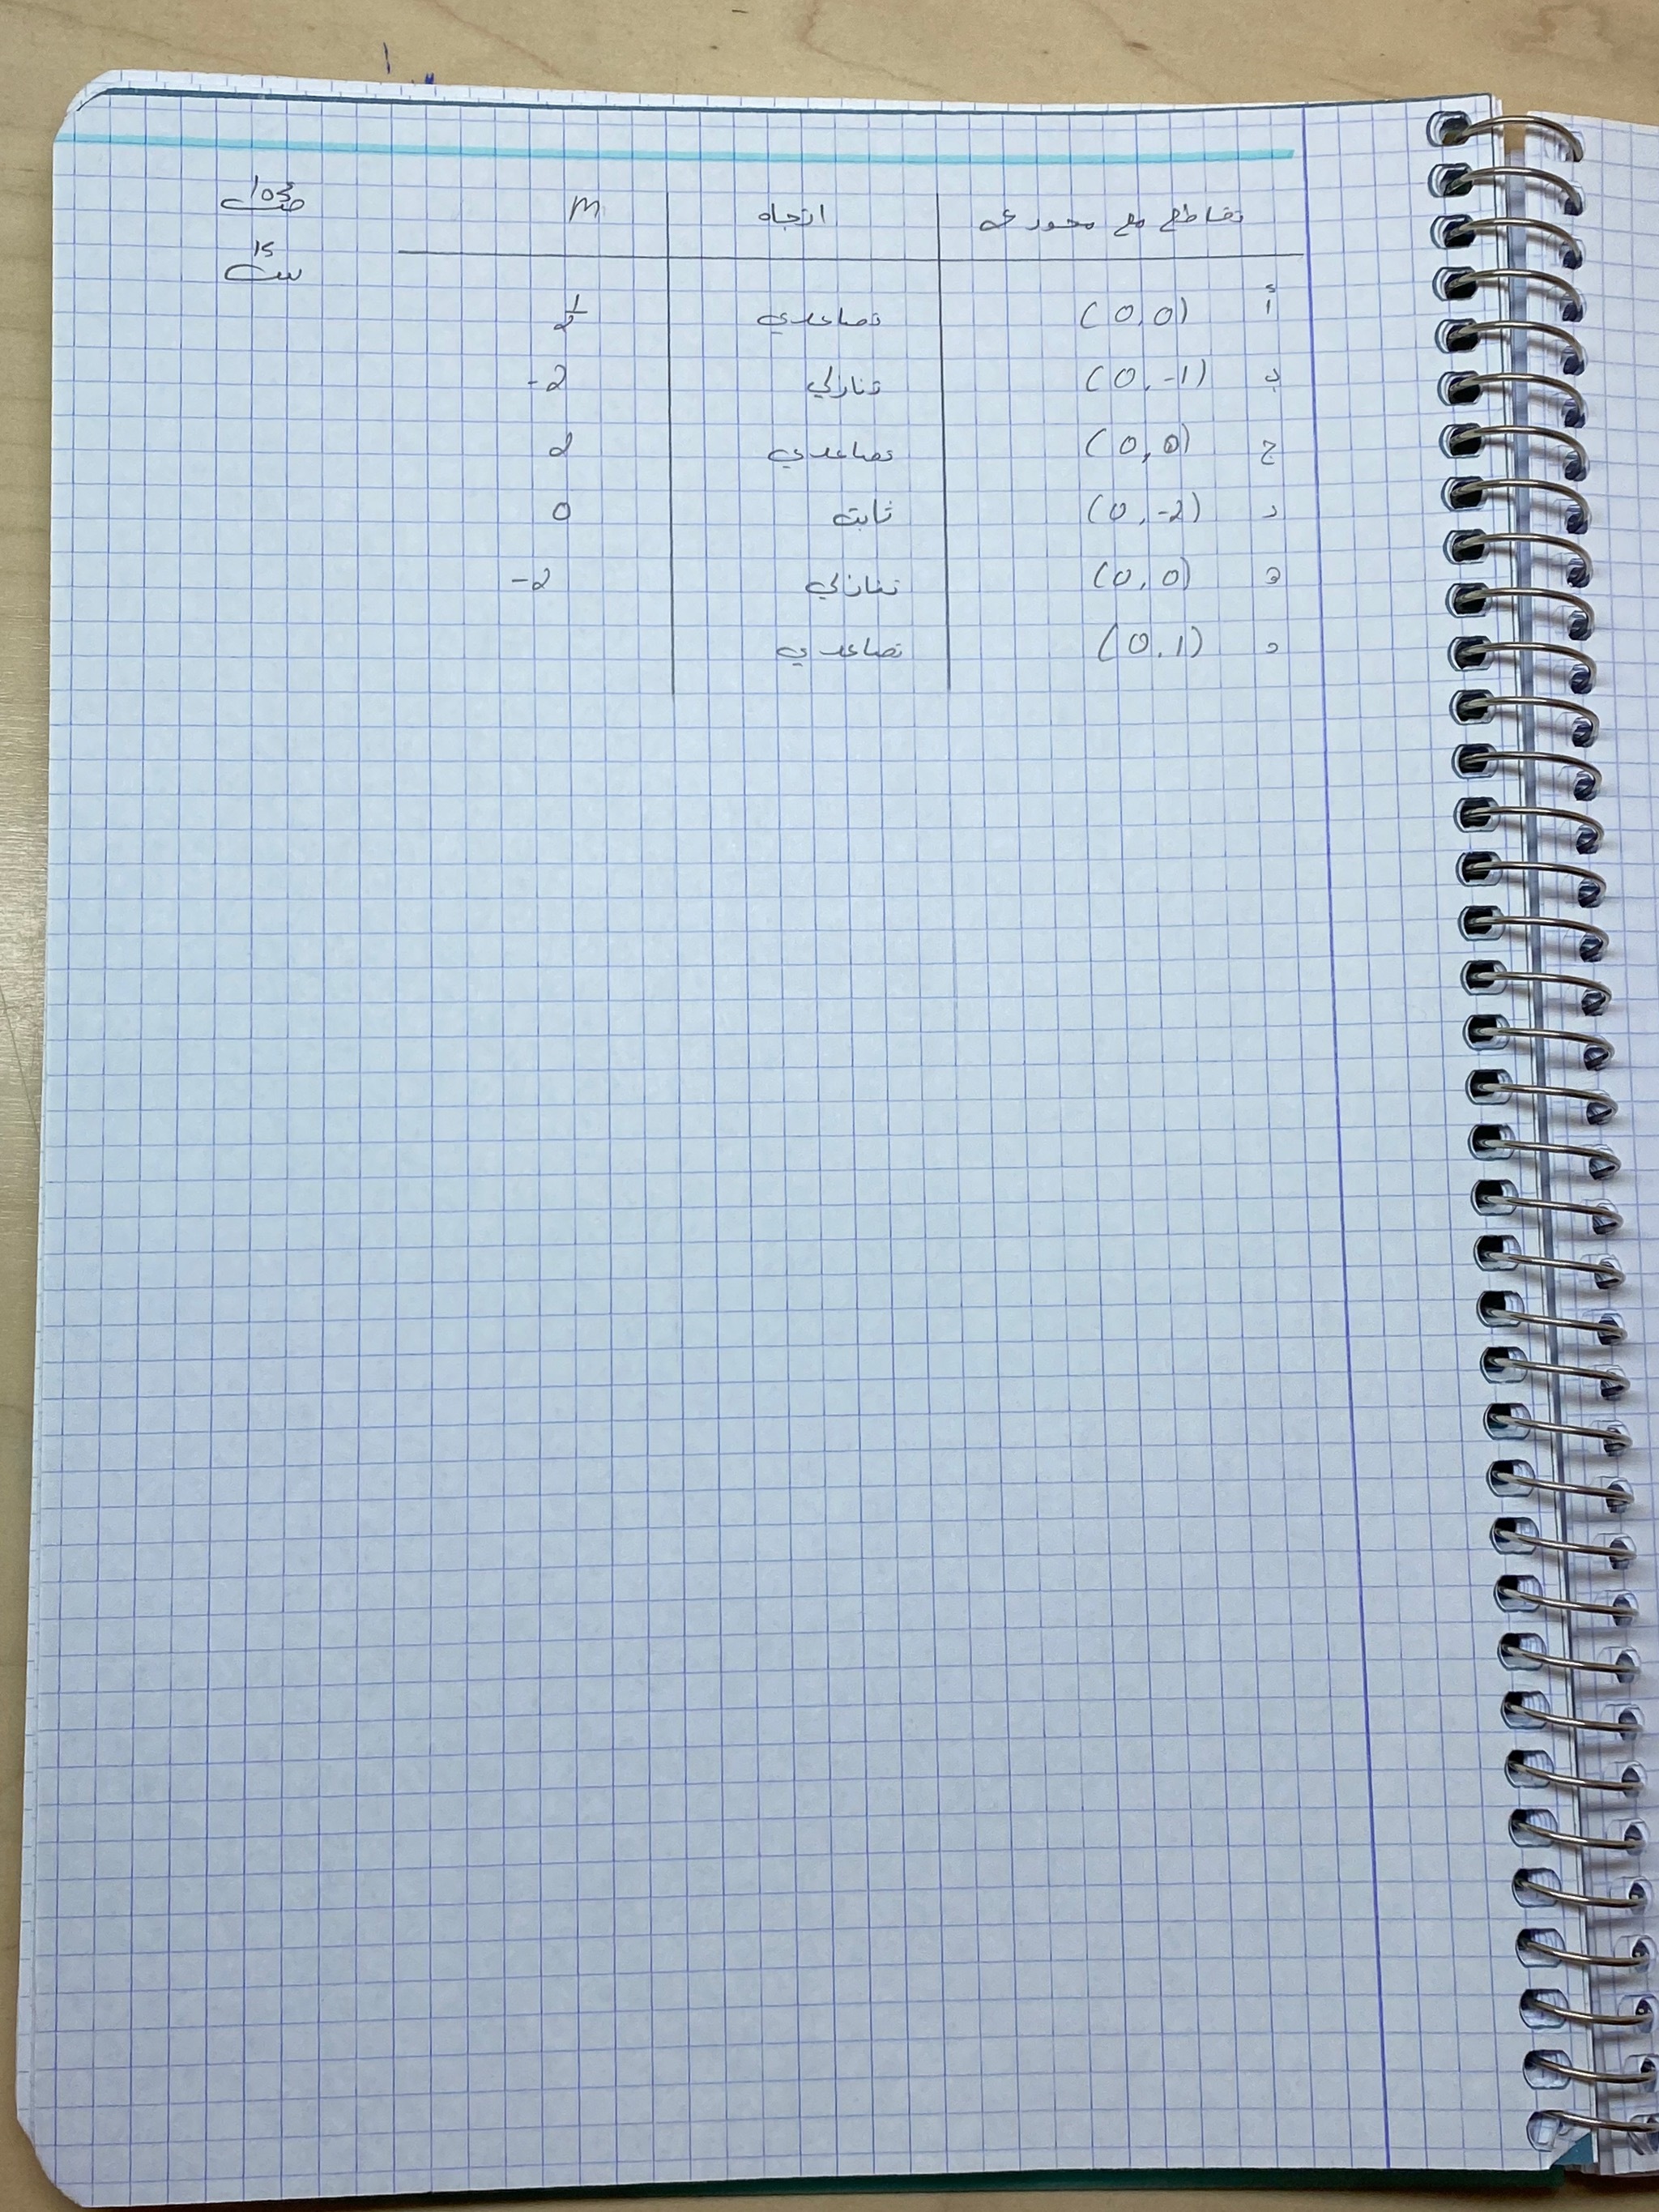 تقاطع مع محور ع اتجاه m صـ 103
س 15
أ (0,0) تصاعدي 1/2
ب (0,-1) تنازلي -2
ج (0,0) تصاعدي 2
د (0,-2) ثابت 0
ه (0,0) تنازلي -2
و (0,1) تصاعدي